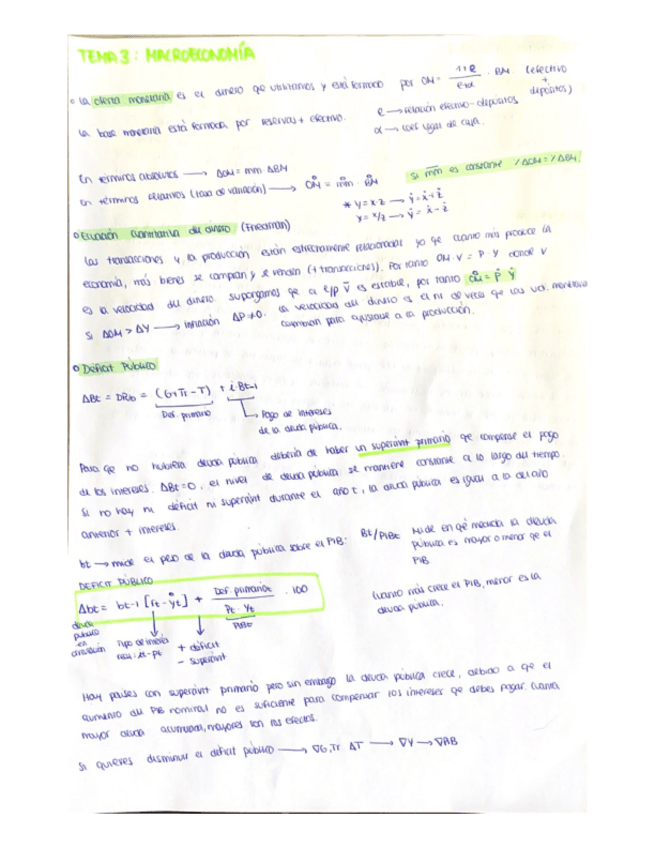 TEMA 3: MACROECONOMÍA
o La oferta monetaria es el dinero qe utilizamos y está formado por OM = (1+e)/(e+α) · BM. (efectivo + depósitos)
La base monetaria está formada por reservas + efectivo.
e → relación efectivo-depósitos
α → coef legal de caja.
En términos absolutos → ΔOM = mm · ΔBM
En términos relativos (tasa de variación) → OM̊ = mm̊ · BM̊
Si mm es constante %ΔOM = %ΔBM.
* y = x·z → ẏ = ẋ + ż
y = x/z → ẏ = ẋ - ż
o Ecuación Cuantitativa del dinero (Friedman)
Las transacciones y la producción están estrechamente relacionadas ya qe cuanto más produce la
economía, más bienes se compran y se venden (+ transacciones). Por tanto OM · V = P · Y donde V
es la velocidad del dinero. Supongamos qe a c/p V̄ es estable, por tanto OM̊ = Ṗ Ẏ
Si ΔOM > ΔY → inflación ΔP≠0. La velocidad del dinero es el nº de veces qe las ud. monetaria
cambian para ajustarse a la producción.
o Déficit Público
ΔBt = DPúb = (G+Tr-T) + i Bt-1
Def. primario
Pago de intereses
de la deuda pública.
Para qe no hubiera deuda pública debería de haber un superávit primario qe compense el pago
de los intereses. ΔBt=0, el nivel de deuda pública se mantiene constante a lo largo del tiempo.
Si no hay ni déficit ni superávit durante el año t, la deuda pública es igual a la del año
anterior + intereses.
bt → mide el peso de la deuda pública sobre el PIB: Bt/PIBt
Mide en qé medida la deuda
pública es mayor o menor qe el
PIB
DÉFICIT PÚBLICO
Δbt = bt-1 [rt - ẙt] + Def. primario t / Pt · Yt · 100
PIBt
Cuanto más crece el PIB, menor es la
deuda pública.
deuda
pública
en
circulación
Tipo de interés
real: it-pt
+ déficit
- superávit
Hay países con superávit primario pero sin embargo la deuda pública crece, debido a qe el
aumento del PIB nominal no es suficiente para compensar los intereses qe debes pagar. Cuanta
mayor deuda acumulada, mayores son los efectos.
Si quieres disminuir el déficit público → ∇G,Tr ΔT → ∇Y → ∇AB